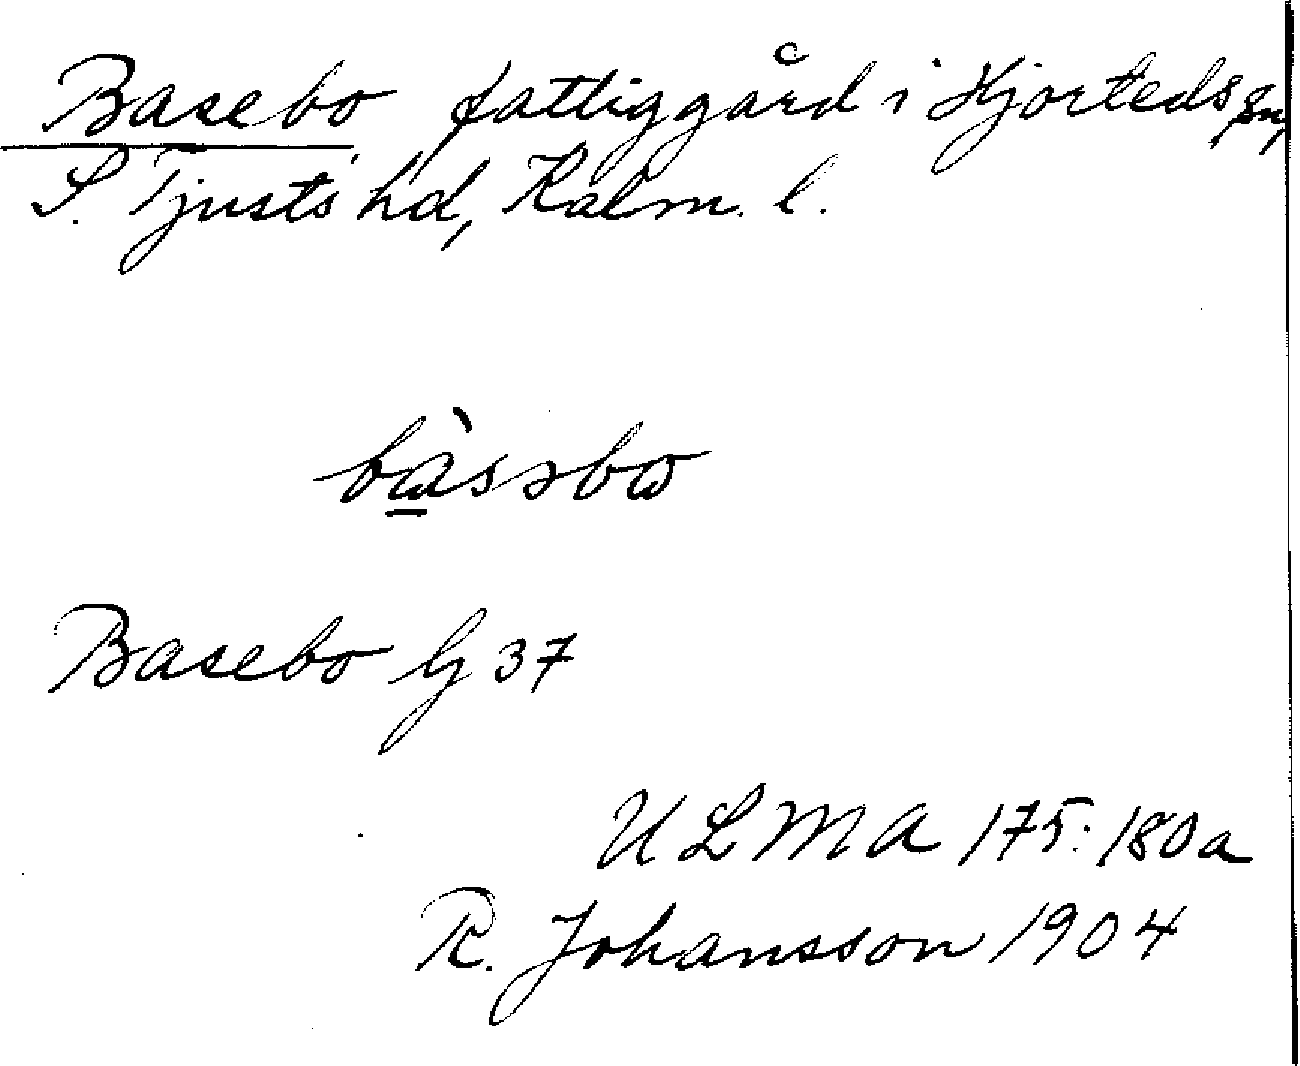 Basebo fattiggård i Hjorteds sn,
S. Tjusts hd, Kalm. l.
bàssbo
Basebo G 37
ULMA 175:180a
R. Johansson 1904